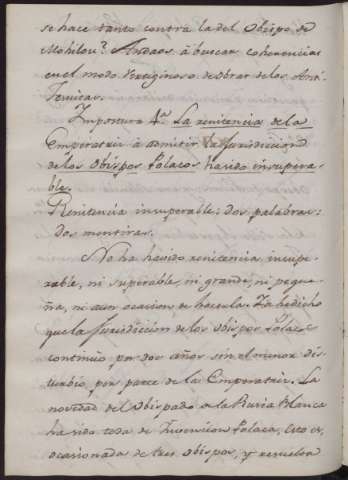 se hace tanto contra la del Obispo de
Mohilou? Andaos á buscar coherencias
en el modo vertiginoso de obrar de los Anti-
Jesuitas.
Impostura 4.ª La renitencia de la
Emperatriz à admitir la Jurisdiccion
de los Obispos Polacos ha sido insupera-
ble.
Renitencia insuperable: dos palabras:
dos mentiras.
No ha havido renitencia, insupe-
rable, ni superable, ni grande, ni peque-
ña, ni aun ocasion de hacerla. Ya he dicho
que la Jurisdiccion de los Obispos Polacos
continuó por dos años sin el menor dis-
turbio, por parte de la Emperatriz. La
novedad del Obispado de la Rusia Blanca
ha sido toda de Invencion Polaca, esto es,
ocasionada de tres Obispos, y resuelta